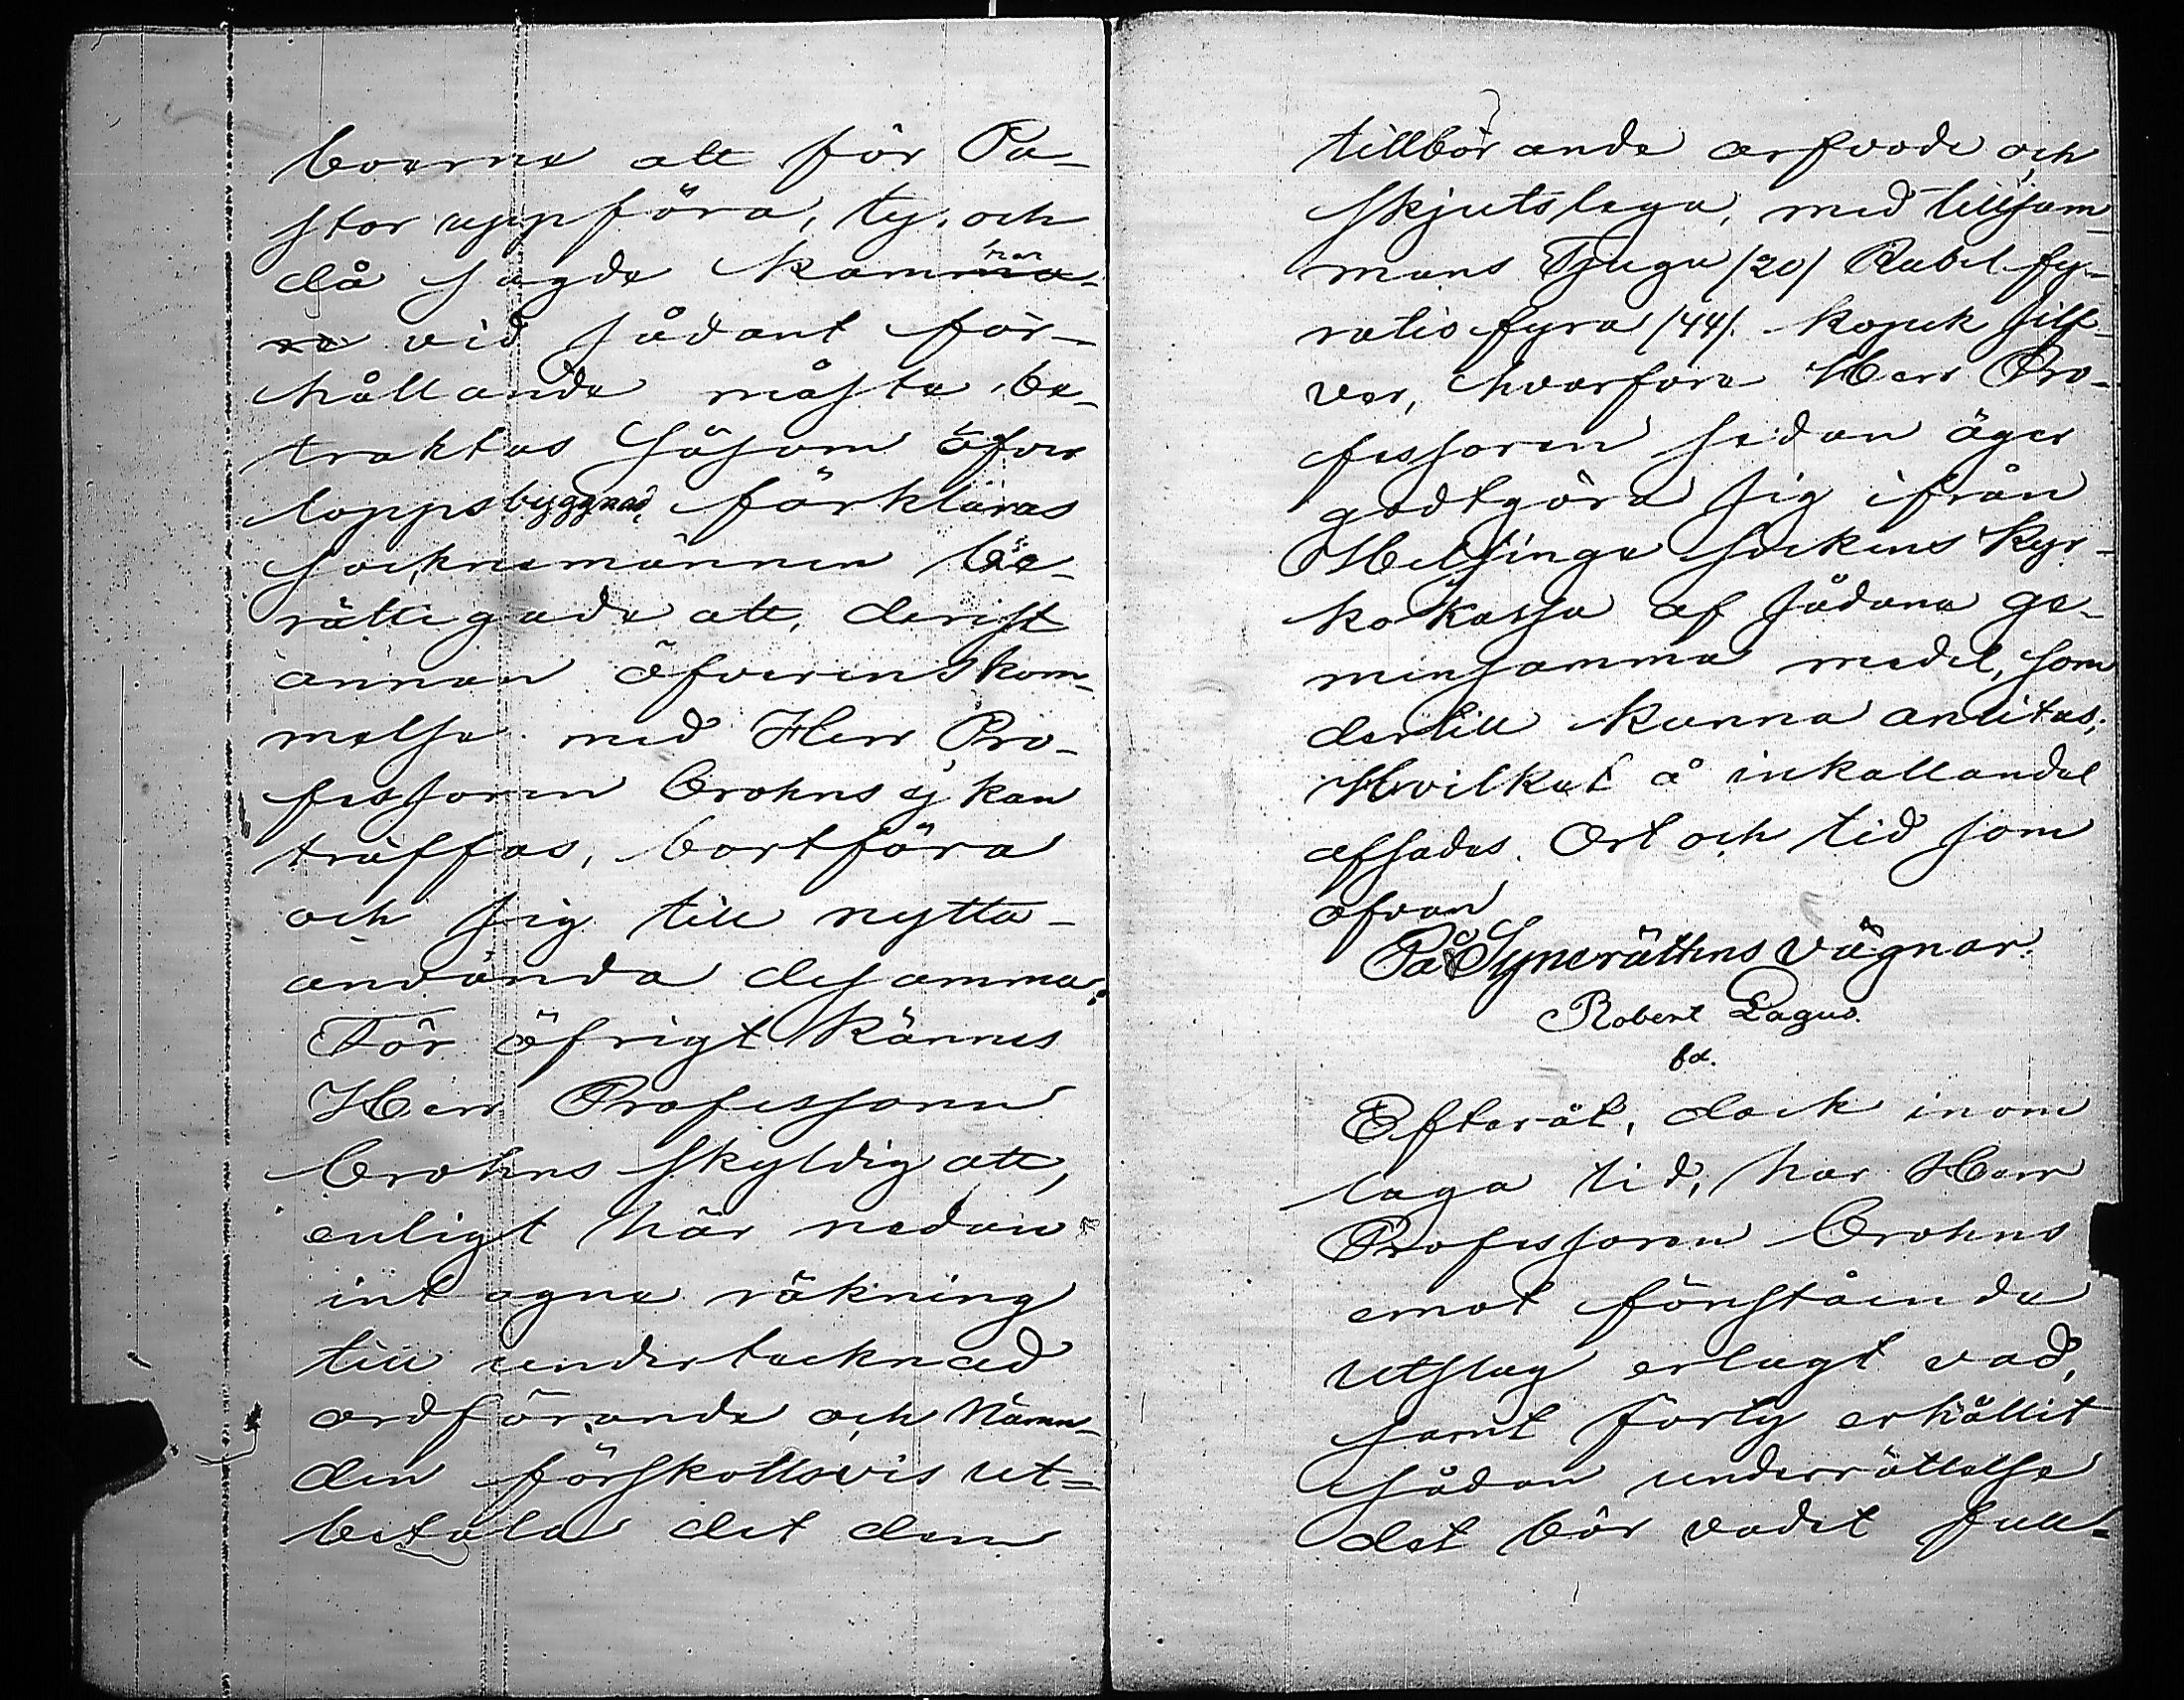 boerne att för Pa-
stor uppföra, ty, och
då sagde kammar
vid sådant för-
hållande måste be-
traktas såsom öfver
loppsbyggnad, förklaras
socknemännen be-
rättigade att, derest
annan öfverenskom-
melse med Herr Pro-
fessoren Crohns ej kan
träffas, bortföra
och sig till nytta
använda desamma.
För öfrigt kännes
Herr Professoren
Crohns skyldig att,
enligt här nedan
intagne räkning
till undertecknad
ordförande och Nämn-
den förskottsvis ut-
betala det dem
tillbörande arfvode och
skjutslega, med tillsam-
mans Tjugu /20/ Rubel fy-
ratio fyra /44/. kopek silf-
ver, hvarföre Herr Pro-
fessoren sedan äger
godtgöra sig ifrån
Helsinge sockens Kyr-
ko kassa af sådana ge-
mensamma medel, som
dertill kunna anlitas;
Hvilket å inkallandet
afsades. Ort och tid som
ofvan
På Synerättens vägnar.
Robert Lagus.
Efteråt, dock inom
laga tid, har Herr
Professoren Crohns
emot förestående
utslag erlagt vad,
samt förty erhållit
sådan underrättelse
det bör vadet full-